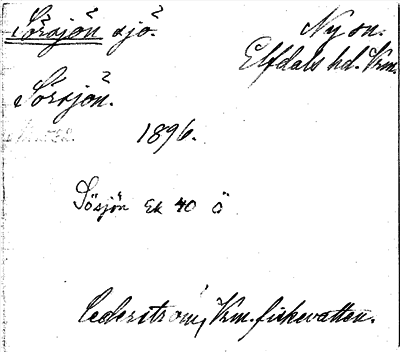 Sörsjön sjö.
Ny sn.
Elfdals hd. Vrm.
Sörsjön.
1896.
Sösjön Ek 40 ö
Cederström, Vrm. fiskevatten.